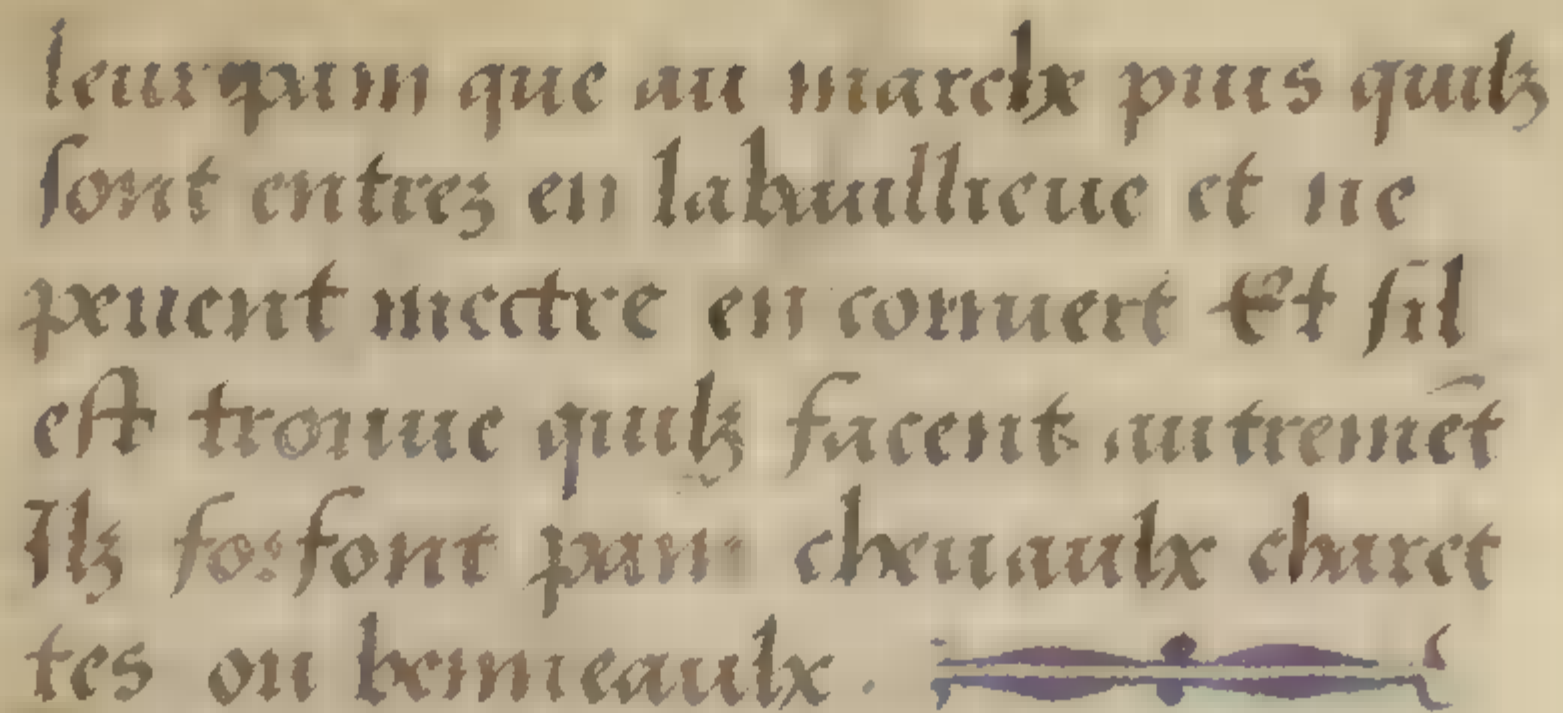 leur pain que au marche puis quilz
sont entrez en la banllieue et ne
peuent mectre en couuert Et sil
est trouue quilz facent autremēt
Ilz forfont pain cheuaulx charet
tes ou benneaulx .